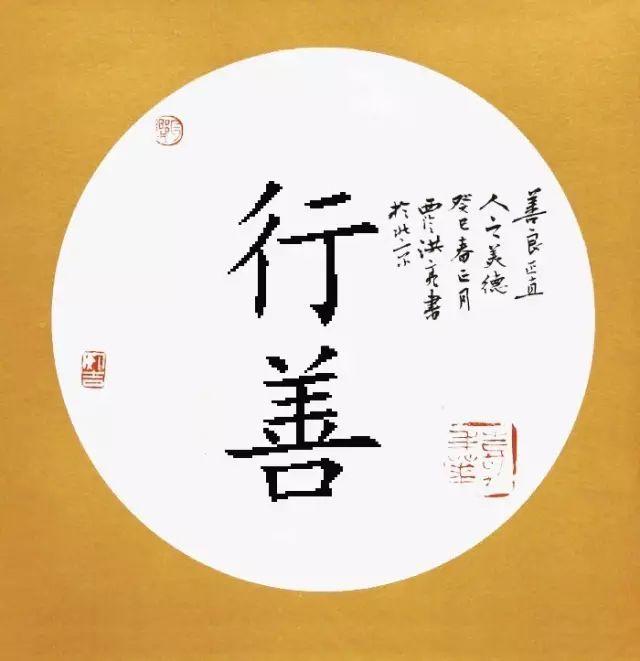 行善
善良正直
人之美德
癸巳春正月
洪亮書
於北京